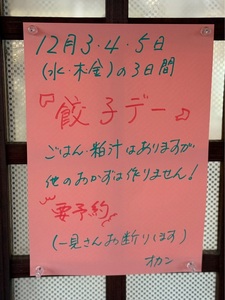 12月3・4・5日
(水・木・金)の3日間
『餃子デー』
ごはん・粕汁はありますが
他のおかずは作りません!
要予約
(一見さんお断りします)
オカン